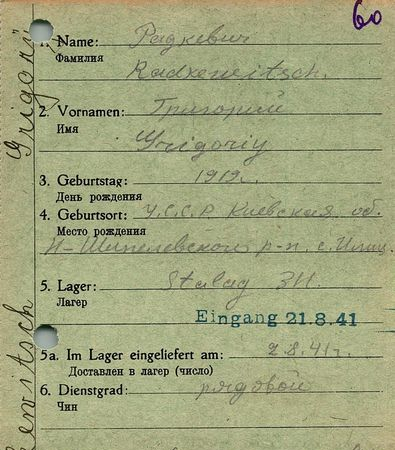 60
1. Name: Радкевич
Фамилия
Radxeweitsch.
2. Vornamen: Григорий
Имя
Grigoriy
3. Geburtstag: 1919г.
День рождения
4. Geburtsort: У.С.С.Р Киевская об.
Место рождения
р-н. с.
5. Lager: Stalag
Лагер
Eingang 21.8.41
5a. Im Lager eingeliefert am: 2.8.41г.
Доставлен в лагер (число)
6. Dienstgrad: рядовой
Чин
Grigorij
ewitsch